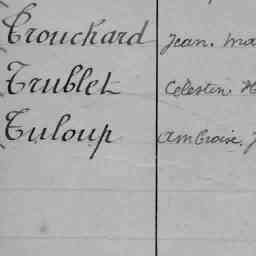 Trouchard Jean. Ma
Trublet Célestin. H
Tuloup Ambroise. J